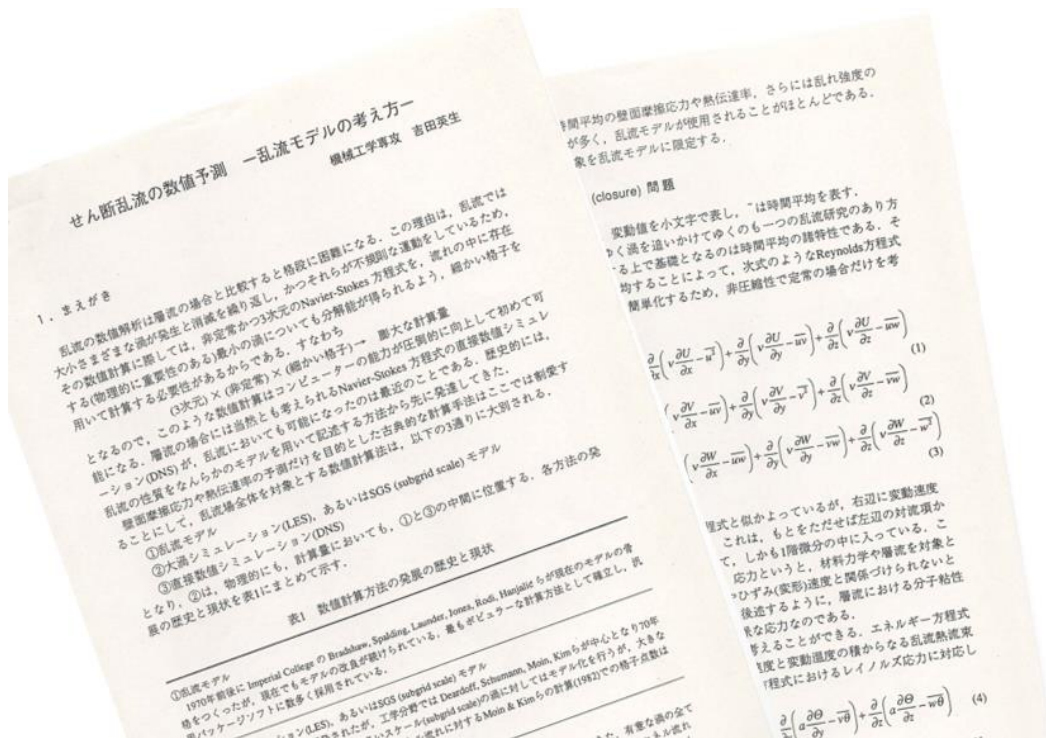 せん断乱流の数値予測 ー乱流モデルの考え方ー
機械工学専攻 吉田英生
1. まえがき
乱流の数値解析は層流の場合と比較すると格段に困難になる.この理由は,乱流では
大小さまざまな渦が発生と消滅を繰り返し,かつそれらが不規則な運動をしているため,
その数値計算に際しては,非定常かつ3次元のNavier-Stokes 方程式を,流れの中に存在
する(物理的に重要性のある)最小の渦についても分解能が得られるよう,細かい格子を
用いて計算する必要性があるからである.すなわち
(3次元) × (非定常) × (細かい格子) → 膨大な計算量
となるので,このような数値計算はコンピューターの能力が圧倒的に向上して初めて可
能になる.層流の場合には当然とも考えられるNavier-Stokes 方程式の直接数値シミュレ
ーション(DNS) が,乱流においても可能になったのは最近のことである.歴史的には,
乱流の性質をなんらかのモデルを用いて記述する方法から先に発達してきた.
壁面摩擦応力や熱伝達率の予測だけを目的とした古典的な計算手法はここでは割愛す
ることにして,乱流場全体を対象とする数値計算法は,以下の3通りに大別される.
①乱流モデル
②大渦シミュレーション(LES),あるいはSGS (subgrid scale) モデル
③直接数値シミュレーション(DNS)
となり,②は,物理的にも,計算量においても,①と③の中間に位置する.各方法の発
展の歴史と現状を表1にまとめて示す.
表1 数値計算方法の発展の歴史と現状
①乱流モデル
1970年前後に Imperial College の Bradshaw, Spalding, Launder, Jones, Rodi, Hanjalić らが現在のモデルの骨
格をつくったが,現在でもモデルの改良が続けられている.最もポピュラーな計算方法として確立し,汎
用パッケージソフトに数多く採用されている.
ション(LES),あるいはSGS (subgrid scale) モデル
されたが,工学分野では Deardoff, Schumann, Moin, Kimらが中心となり70年
スケール(subgrid scale)の渦に対してはモデル化を行うが,大きな
流れに対するMoin & Kimらの計算(1982)での格子点数は
有意な渦の全て
時間平均の壁面摩擦応力や熱伝達率,さらには乱れ強度の
が多く,乱流モデルが使用されることがほとんどである.
象を乱流モデルに限定する.
(closure) 問題
変動値を小文字で表し, ‾は時間平均を表す.
ゆく渦を追いかけてゆくのも一つの乱流研究のあり方
る上で基礎となるのは時間平均の諸特性である.そ
均することによって,次式のようなReynolds方程式
簡単化するため,非圧縮性で定常の場合だけを考
∂/∂x(ν∂U/∂x − u̅²)+∂/∂y(ν∂U/∂y − u̅v̅)+∂/∂z(ν∂U/∂z − u̅w̅)
(1)
(ν∂V/∂x − u̅v̅)+∂/∂y(ν∂V/∂y − v̅²)+∂/∂z(ν∂V/∂z − v̅w̅)
(2)
(ν∂W/∂x − u̅w̅)+∂/∂y(ν∂W/∂y − v̅w̅)+∂/∂z(ν∂W/∂z − w̅²)
(3)
程式と似かよっているが,右辺に変動速度
これは,もとをただせば左辺の対流項か
て,しかも1階微分の中に入っている.こ
応力というと,材料力学や層流を対象と
ひずみ(変形)速度と関係づけられないと
後述するように,層流における分子粘性
な応力なのである.
考えることができる.エネルギー方程式
速度と変動温度の積からなる乱流熱流束
方程式におけるレイノルズ応力に対応し
∂/∂y(a∂Θ/∂y − v̅θ̅)+∂/∂z(a∂Θ/∂z − w̅θ̅) (4)